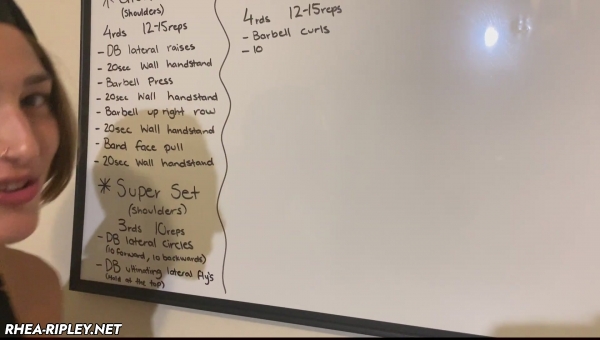 (shoulders)
4rds 12-15reps
- DB lateral raises
- 20sec Wall handstand
- Barbell Press
- 20sec Wall handstand
- Barbell up right row
- 20sec Wall handstand
- Band face pull
- 20sec Wall handstand
* Super Set
(shoulders)
3rds 10reps
- DB lateral circles
(10 forward, 10 backwards)
- DB ultinating lateral fly's
(Hold at the top)
4rds 12-15reps
- Barbell curls
- 10
RHEA-RIPLEY.NET